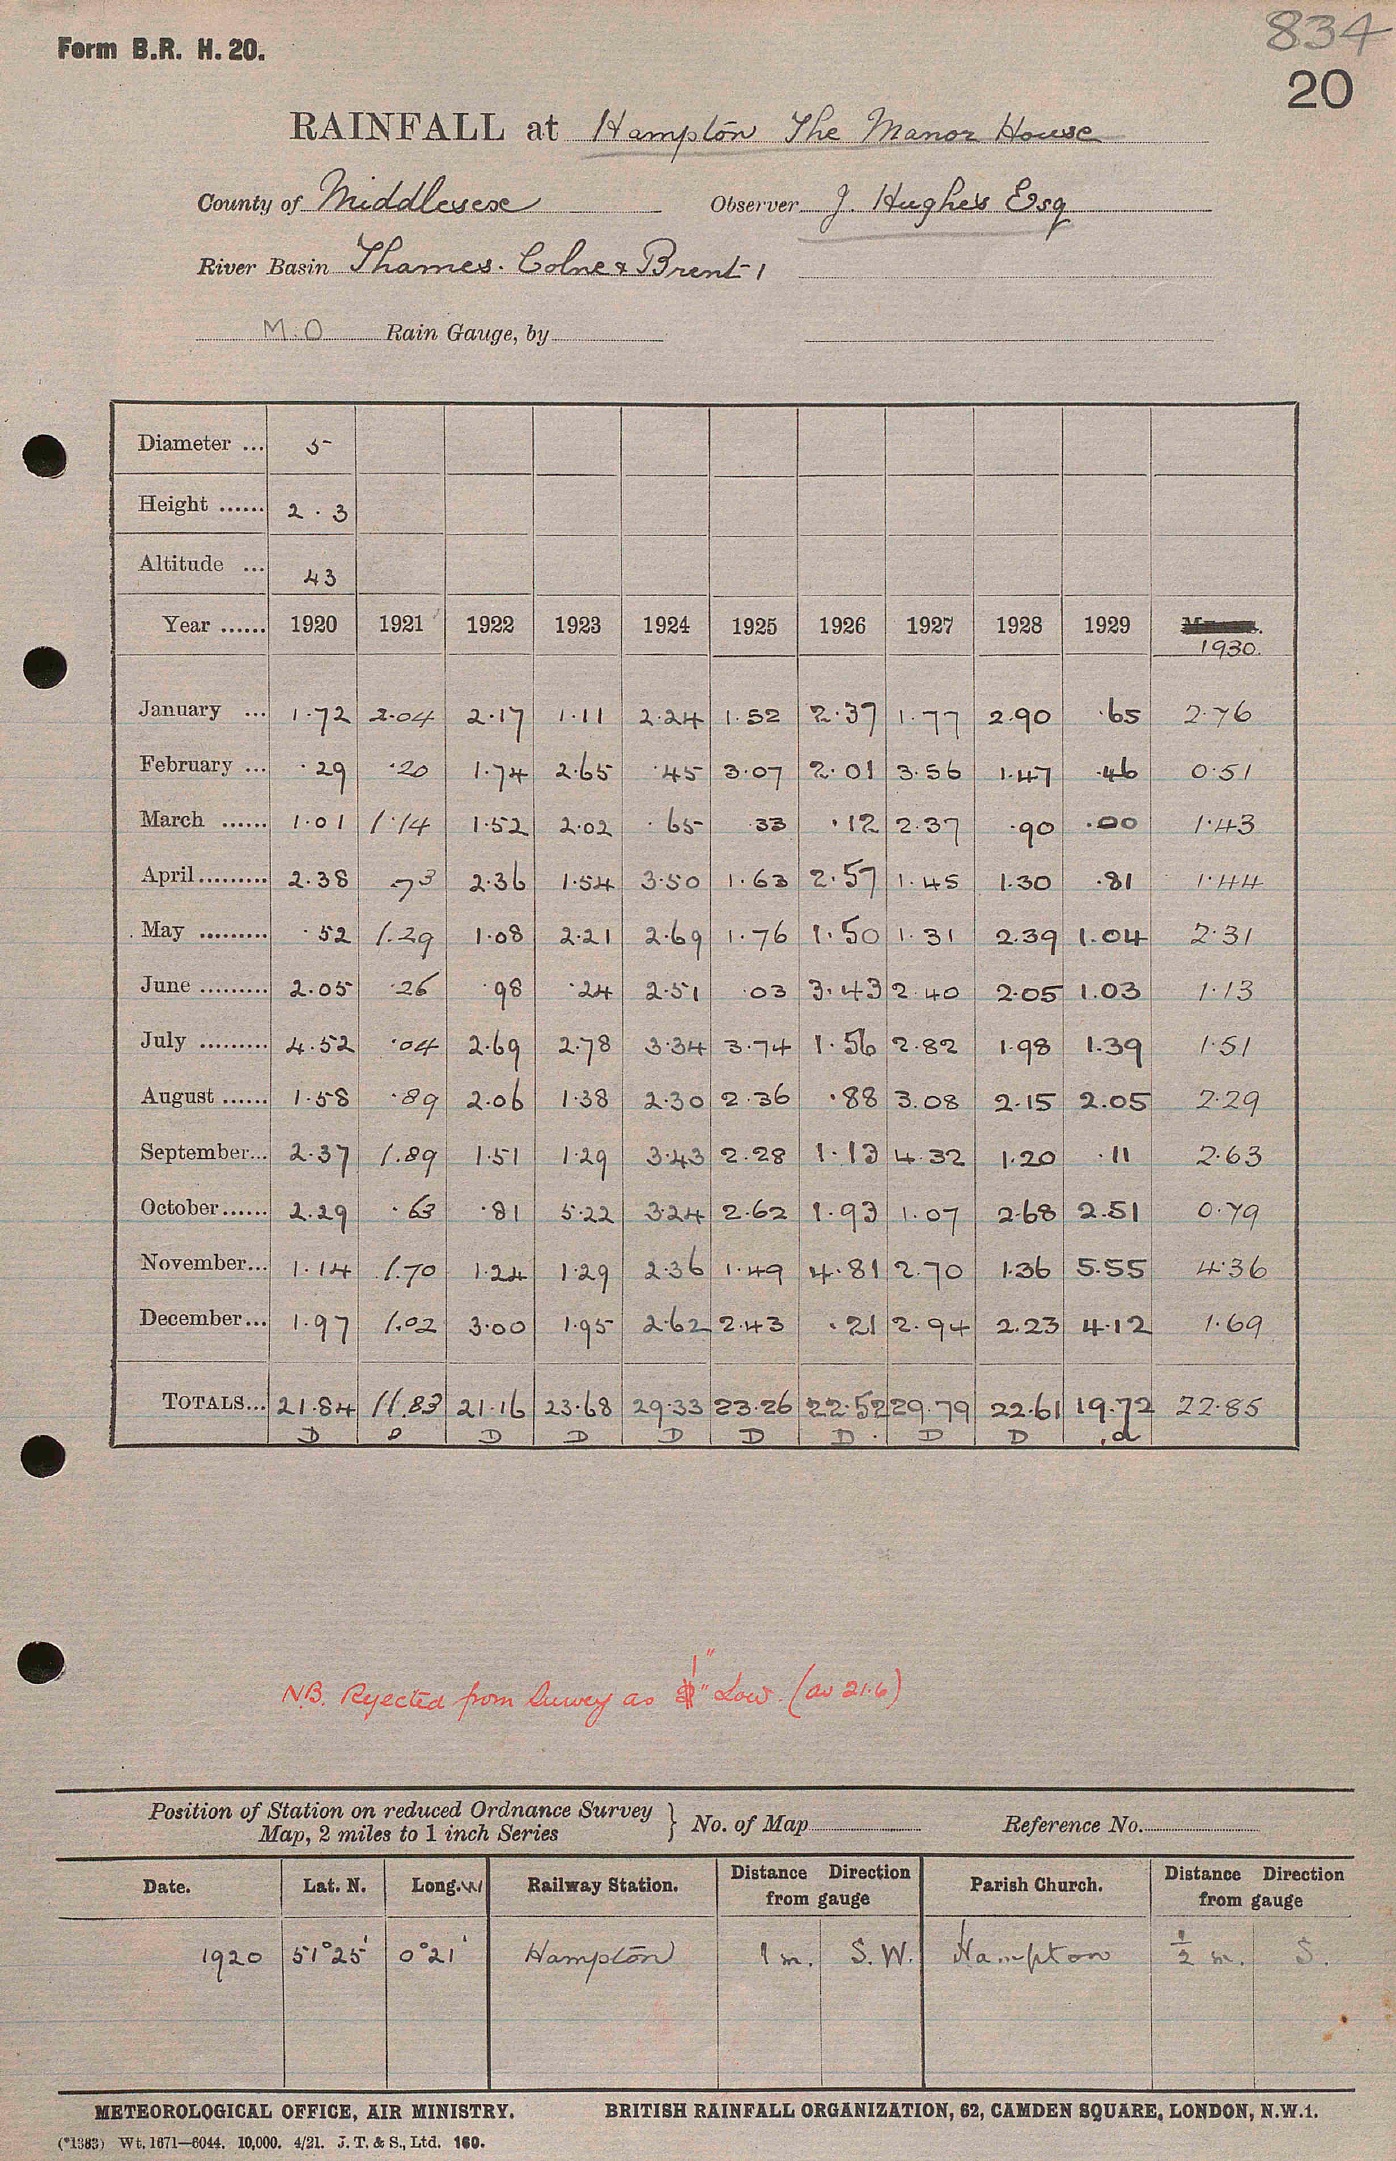 834
Form B.R. H. 20.
20
RAINFALL at Hampton The Manor House
County of Middlesex Observer J. Hughes Esq
River Basin Thames. Colne & Brent 1
M.O Rain Gauge, by
Diameter ... 5
Height ...... 2.3
Altitude ... 43
Year ...... 1920 1921 1922 1923 1924 1925 1926 1927 1928 1929 1930.
January ... 1.72 2.04 2.17 1.11 2.24 1.52 2.37 1.77 2.90 .65 2.76
February ... .29 .20 1.74 2.65 .45 3.07 2.01 3.56 1.47 .46 0.51
March ...... 1.01 1.14 1.52 2.02 .65 .33 .12 2.37 .90 .00 1.43
April......... 2.38 .73 2.36 1.54 3.50 1.63 2.57 1.45 1.30 .81 1.44
May ......... .52 1.29 1.08 2.21 2.69 1.76 1.50 1.31 2.39 1.04 2.31
June ......... 2.05 .26 .98 .24 2.51 .03 3.43 2.40 2.05 1.03 1.13
July ......... 4.52 .04 2.69 2.78 3.34 3.74 1.56 2.82 1.98 1.39 1.51
August ...... 1.58 .89 2.06 1.38 2.30 2.36 .88 3.08 2.15 2.05 2.29
September... 2.37 1.89 1.51 1.29 3.43 2.28 1.13 4.32 1.20 .11 2.63
October...... 2.29 .63 .81 5.22 3.24 2.62 1.93 1.07 2.68 2.51 0.79
November... 1.14 1.70 1.24 1.29 2.36 1.49 4.81 2.70 1.36 5.55 4.36
December... 1.97 1.02 3.00 1.95 2.62 2.43 .21 2.94 2.23 4.12 1.69
TOTALS... 21.84 11.83 21.16 23.68 29.33 23.26 22.52 29.79 22.61 19.72 22.85
D D D D D D D D D .d
N.B. Rejected from Survey as 1" Low. (av 21.6)
Position of Station on reduced Ordnance Survey
Map, 2 miles to 1 inch Series } No. of Map Reference No.
Date. Lat. N. Long. W Railway Station. Distance Direction from gauge Parish Church. Distance Direction from gauge
1920 51°25' 0°21' Hampton 1 m. S.W. Hampton ½ m. S.
METEOROLOGICAL OFFICE, AIR MINISTRY. BRITISH RAINFALL ORGANIZATION, 62, CAMDEN SQUARE, LONDON, N.W.1.
(*1383) Wt. 1671—6044. 10,000. 4/21. J. T. & S., Ltd. 160.